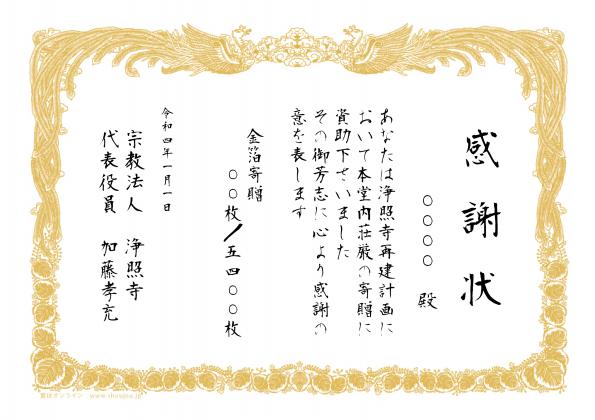 感謝状
〇〇〇〇 殿
あなたは浄照寺再建計画に
おいて本堂内荘厳の寄贈に
資助下さいました
その御芳志に心より感謝の
意を表します
金箔寄贈
〇〇枚/五四〇〇枚
令和四年一月一日
宗教法人 浄照寺
代表役員 加藤孝充
賞状オンライン www.shoujou.jp